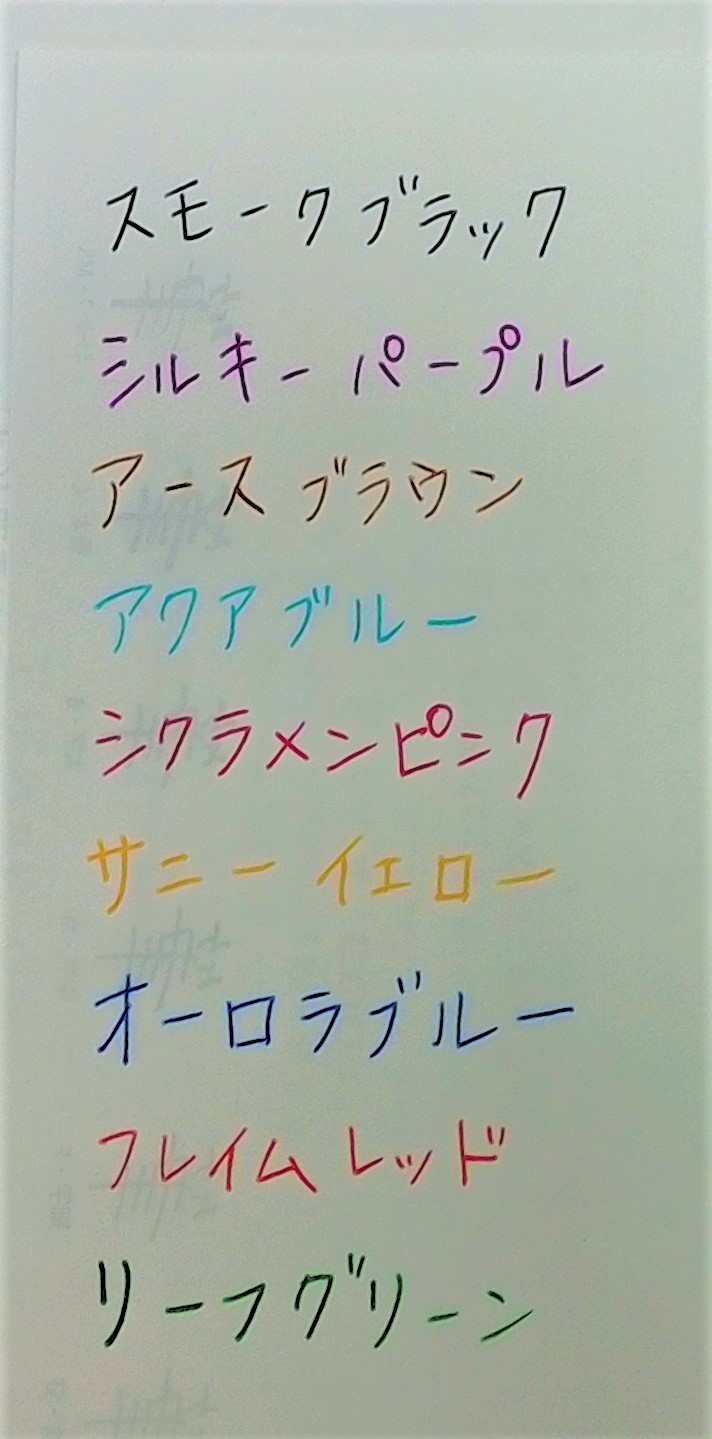 スモークブラック
シルキーパープル
アースブラウン
アクアブルー
シクラメンピンク
サニーイエロー
オーロラブルー
フレイムレッド
リーフグリーン